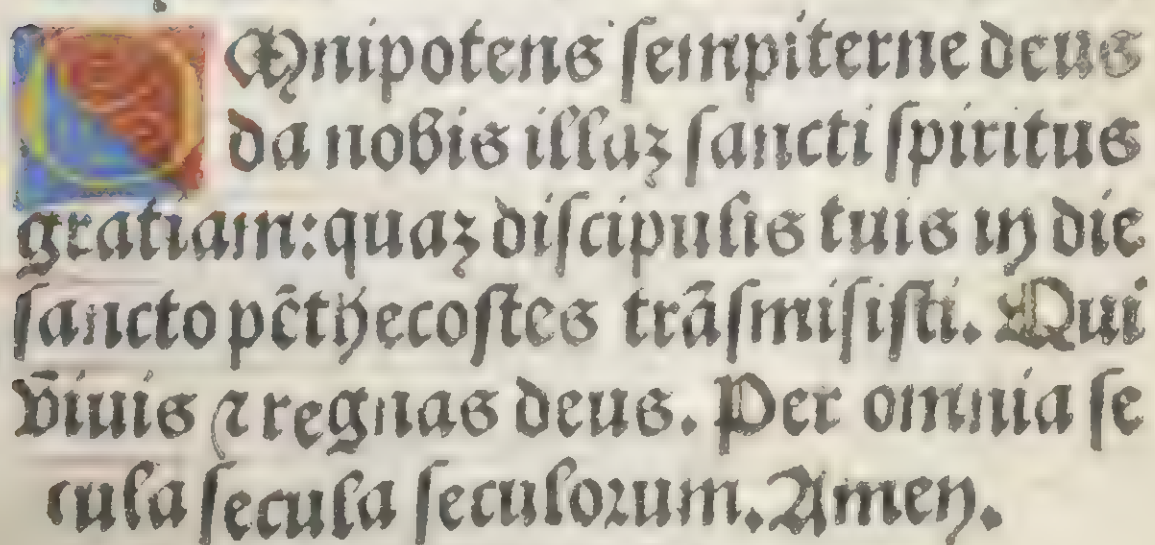 OMnipotens sempiterne deus
da nobis illaz sancti spiritus
gratiam: quaz discipulis tuis in die
sancto pēthecostes trāsmisisti. Qui
viuis ⁊ regnas deus. Per omnia se
cula secula seculorum. Amen.